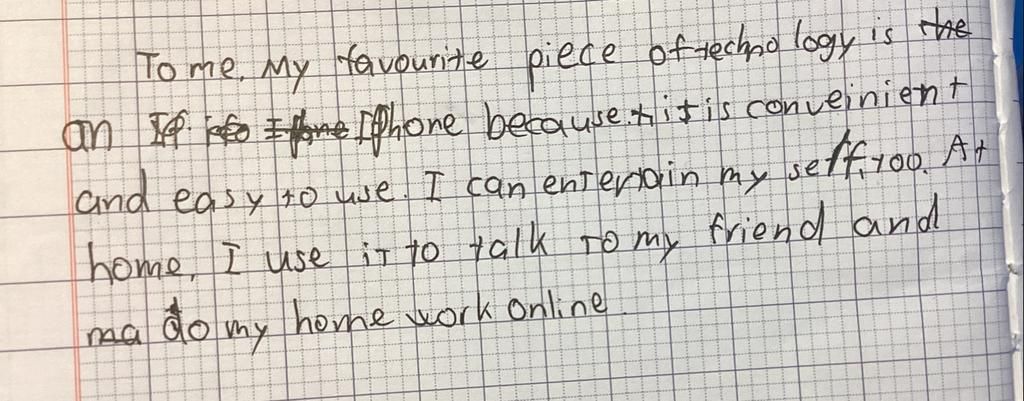 To me, My favourite piece of technology is the
an If Iphone Iphone because it is conveinient
and easy to use. I can entertain my self, too. At
home, I use it to talk to my friend and
ma do my home work online.